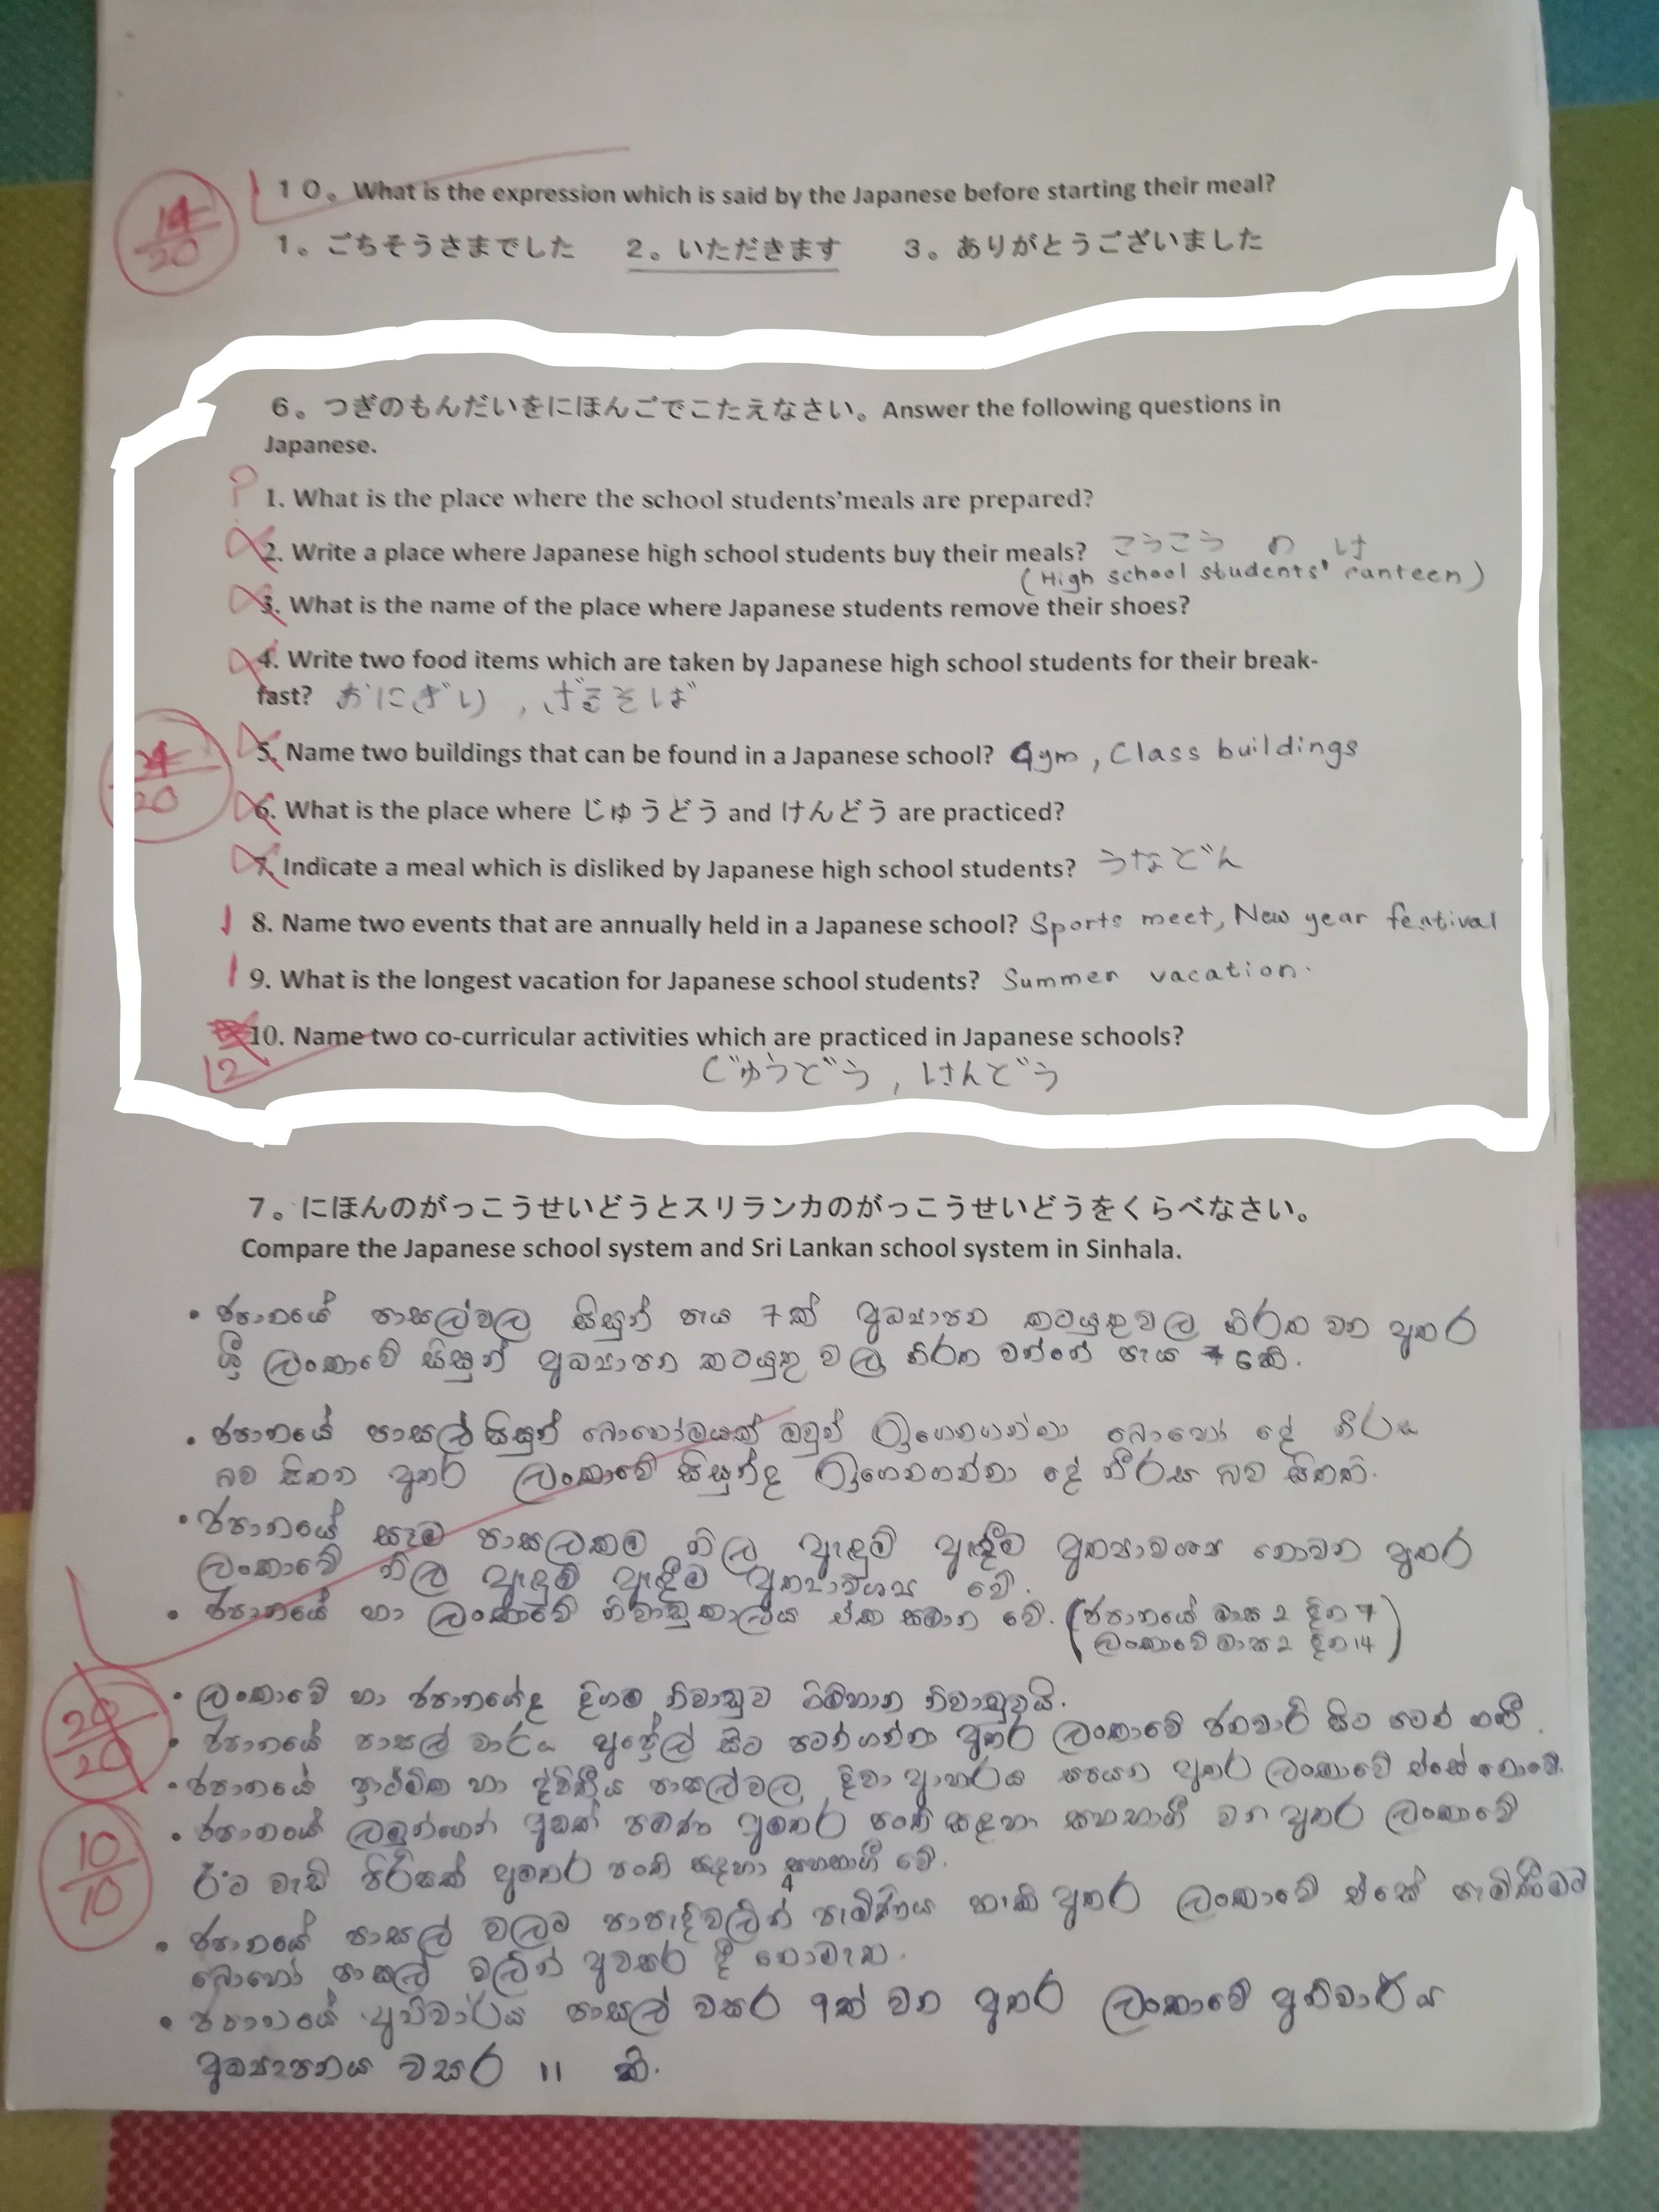 14
20
1０。What is the expression which is said by the Japanese before starting their meal?
1。ごちそうさまでした 2。いただきます 3。ありがとうございました
6。つぎのもんだいをにほんごでこたえなさい。Answer the following questions in
Japanese.
1. What is the place where the school students'meals are prepared?
2. Write a place where Japanese high school students buy their meals? こうこう の け
(High school students' canteen)
3. What is the name of the place where Japanese students remove their shoes?
4. Write two food items which are taken by Japanese high school students for their break-
fast? おにぎり , ざるそば
5. Name two buildings that can be found in a Japanese school? Gym, Class buildings
20
6. What is the place where じゅうどう and けんどう are practiced?
7. Indicate a meal which is disliked by Japanese high school students? うなどん
8. Name two events that are annually held in a Japanese school? Sports meet, New year festival
9. What is the longest vacation for Japanese school students? Summer vacation.
10. Name two co-curricular activities which are practiced in Japanese schools?
2
じゅうどう, けんどう
7。にほんのがっこうせいどうとスリランカのがっこうせいどうをくらべなさい。
Compare the Japanese school system and Sri Lankan school system in Sinhala.
• ජපානයේ පාසල්වල සිසුන් පැය 7ක් අධ්‍යාපන කටයුතුවල නිරත වන අතර
ශ්‍රී ලංකාවේ සිසුන් අධ්‍යාපන කටයුතු වල නිරත වන්නේ පැය 6කි.
• ජපානයේ පාසල් සිසුන් බොහෝමයක් ඔවුන් ඉගෙනගන්නා බොහෝ දේ නීරස
බව සිතන අතර ලංකාවේ සිසුන්ද ඉගෙනගන්නා දේ නීරස බව සිතති.
• ජපානයේ සෑම පාසලකම නිල ඇඳුම් ඇඳීම අත්‍යාවශ්‍ය නොවන අතර
ලංකාවේ නිල ඇඳුම් ඇඳීම අත්‍යාවශ්‍ය වේ.
• ජපානයේ හා ලංකාවේ නිවාඩුකාලය එක සමාන වේ. (ජපානයේ මාස 2 දින 7
ලංකාවේ මාස 2 දින 14)
• ලංකාවේ හා ජපානයේද දිගම නිවාඩුව ගිම්හාන නිවාඩුවයි.
20
20
• ජපානයේ පාසල් වාරය අප්‍රේල් සිට පටන්ගන්නා අතර ලංකාවේ ජනවාරි සිට පටන් ගනී.
• ජපානයේ ප්‍රාථමික හා ද්විතීය පාසල්වල දිවා ආහාරය සපයන අතර ලංකාවේ එසේ නොවේ.
• ජපානයේ ළමුන්ගෙන් අඩක් පමණ අමතර පංති සඳහා සහභාගී වන අතර ලංකාවේ
10
10
ඊට වැඩි පිරිසක් අමතර පංති සඳහා සහභාගී වේ.
• ජපානයේ පාසල් වලට පාපැදිවලින් පැමිණිය හැකි අතර ලංකාවේ එසේ පැමිණීමට
බොහෝ පාසල් වලින් අවසර දී නොමැත.
• ජපානයේ අනිවාර්ය පාසල් වසර 9ක් වන අතර ලංකාවේ අනිවාර්ය
අධ්‍යාපනය වසර 11 කි.